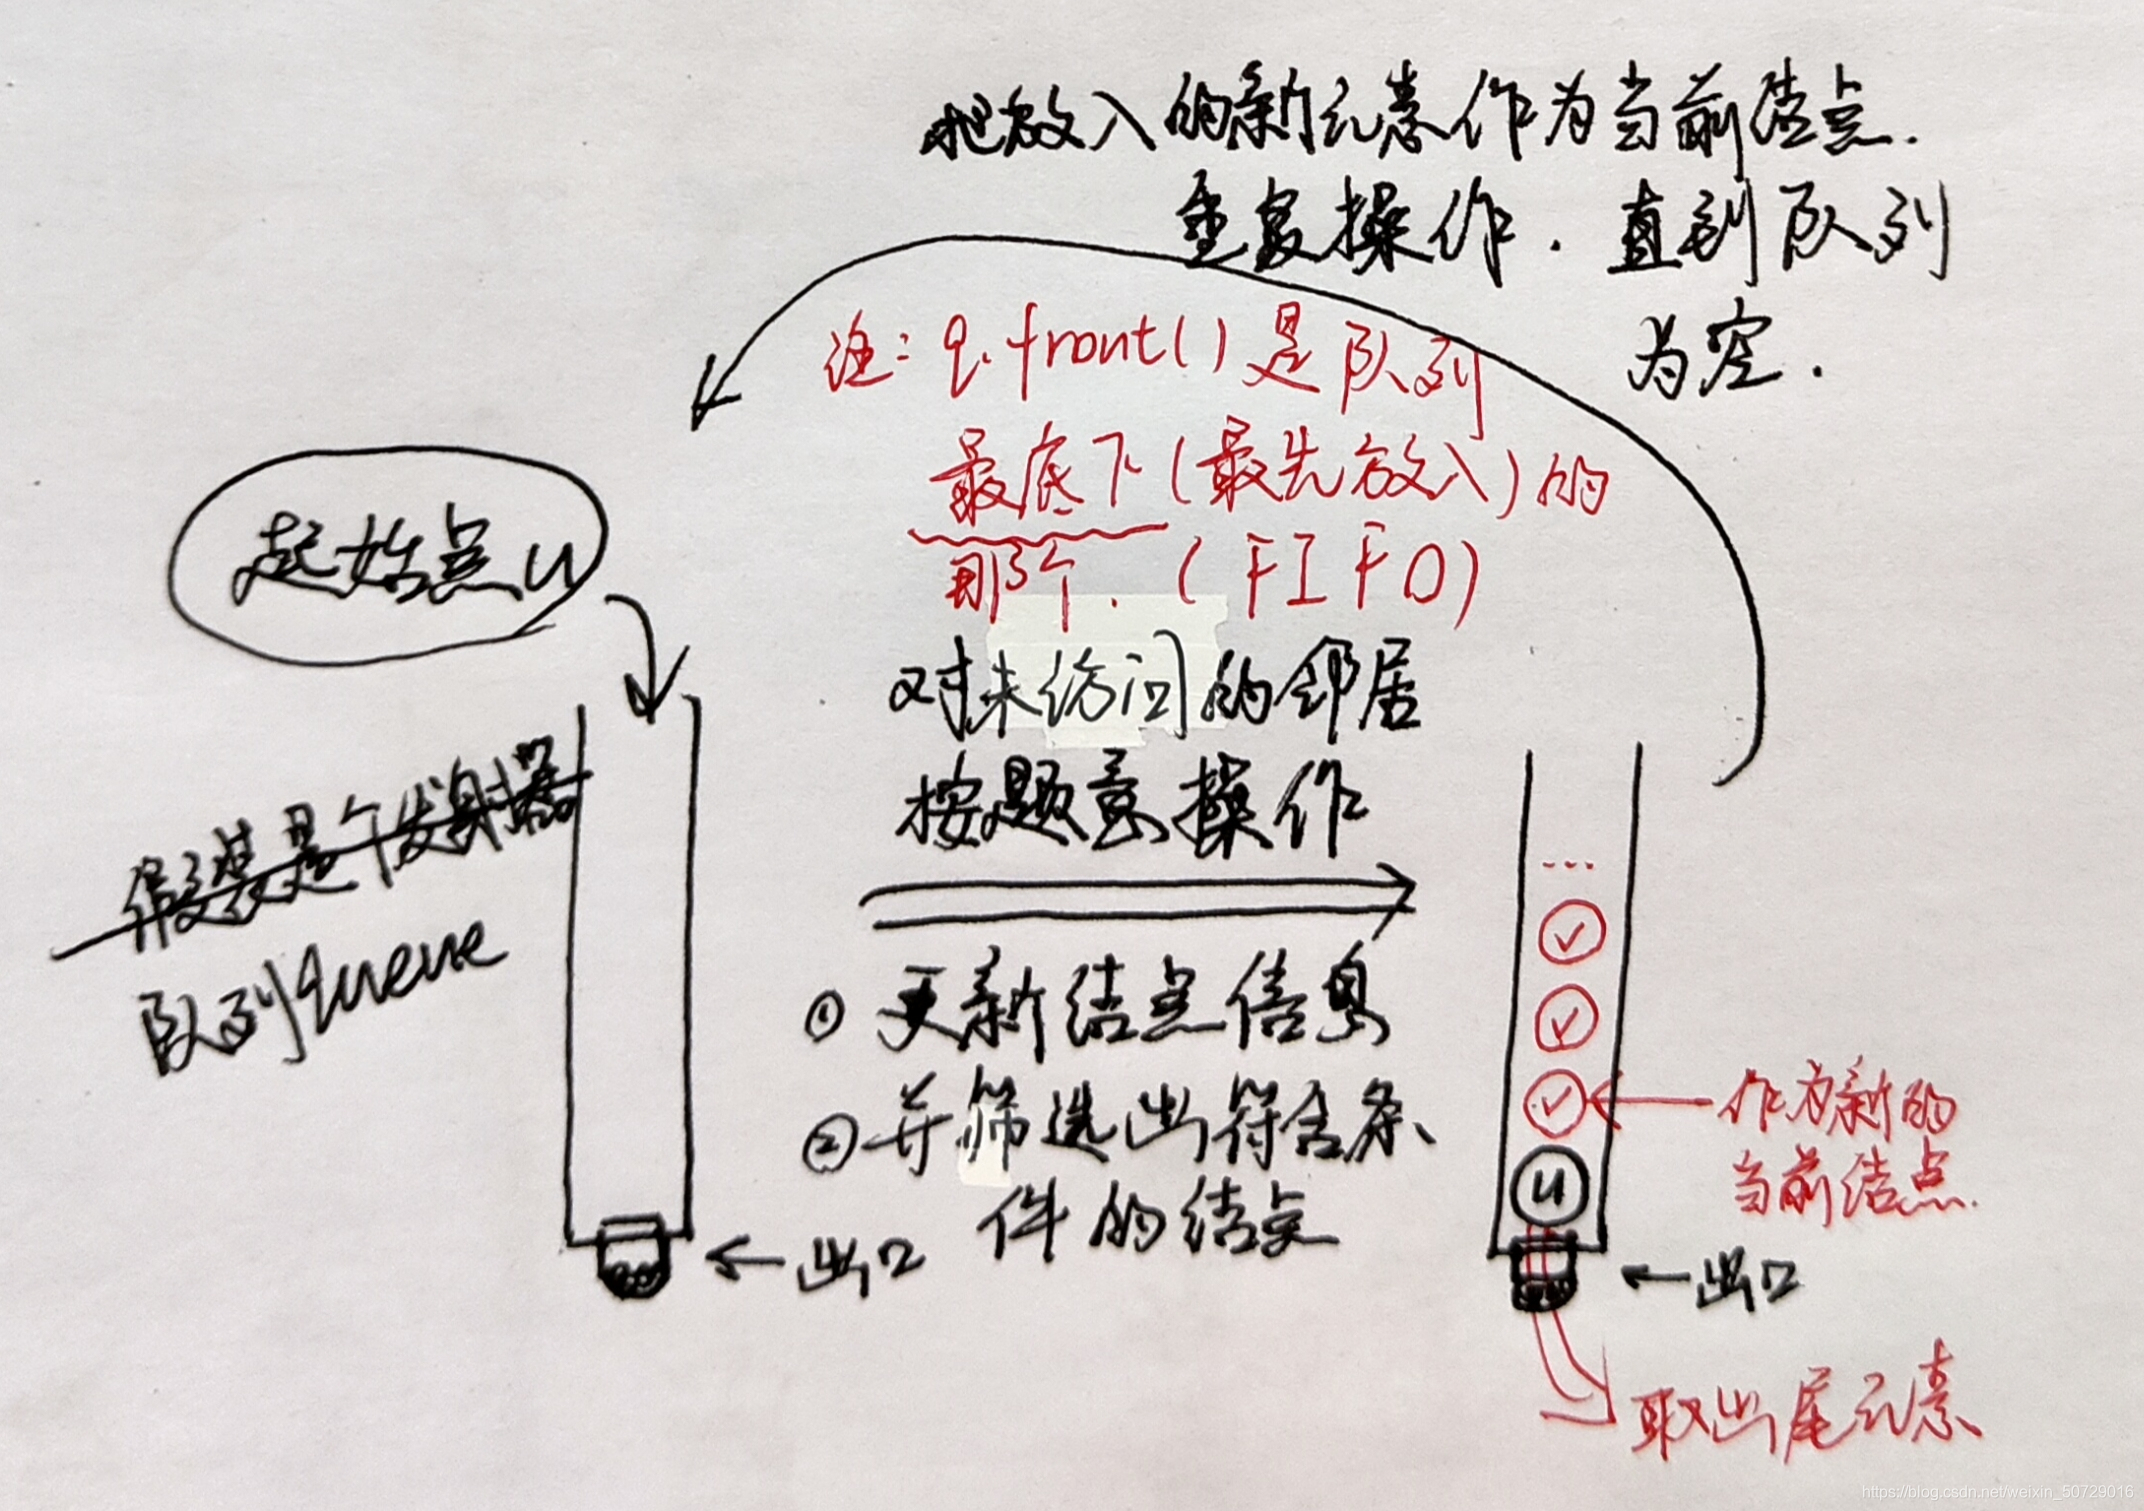 把放入的新元素作为当前结点.
重复操作. 直到队列
为空.
注: q.front()是队列
最底下(最先放入)的
那个. (FIFO)
起始点u
对未访问的邻居
按题意操作
假装是个发射器
队列queue
① 更新结点信息
② 并筛选出符合条
件的结点
出口
...
作为新的
当前结点.
u
出口
取出尾元素
https://blog.csdn.net/weixin_50729016